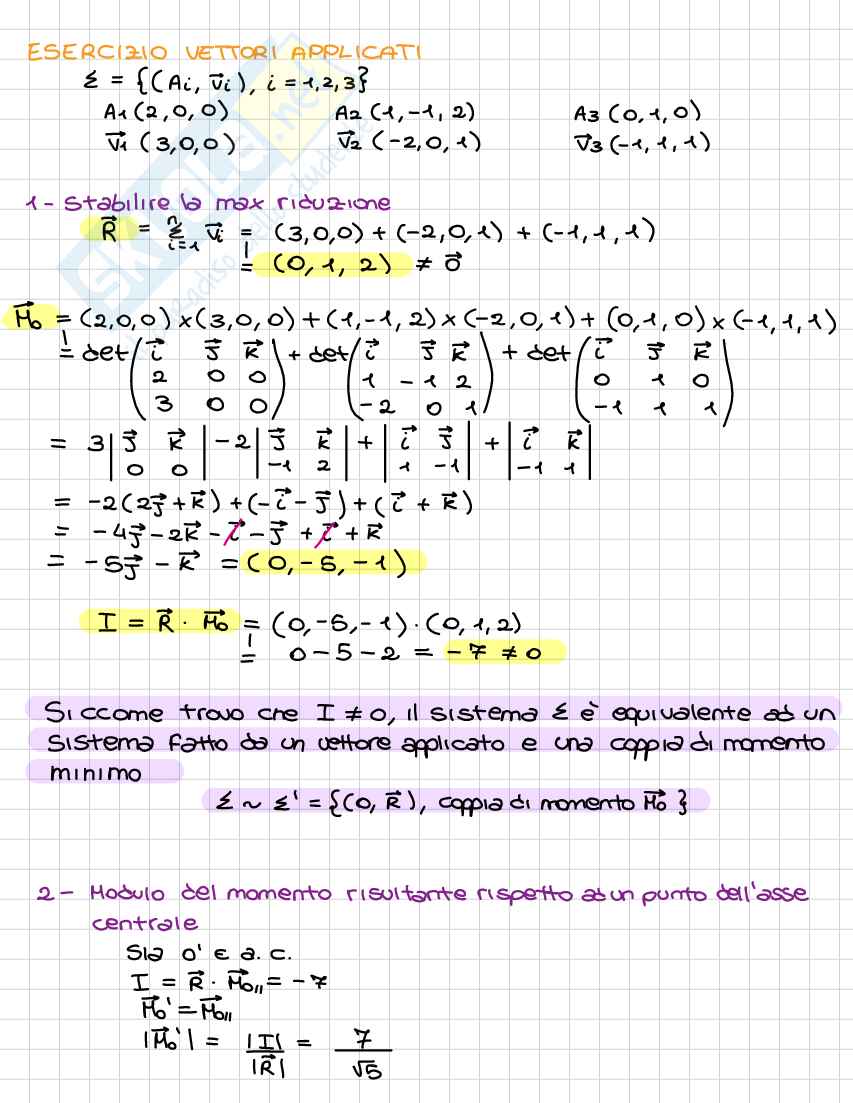 ESERCIZIO VETTORI APPLICATI
Σ = {(Ai, v⃗i), i = 1,2,3}
A1 (2,0,0) A2 (1,-1,2) A3 (0,1,0)
v⃗1 (3,0,0) v⃗2 (-2,0,1) v⃗3 (-1,1,1)
1 - Stabilire la max riduzione
R⃗ = Σ_{i=1}^{n} v⃗i = (3,0,0) + (-2,0,1) + (-1,1,1)
= (0,1,2) ≠ 0⃗
M⃗o = (2,0,0) × (3,0,0) + (1,-1,2) × (-2,0,1) + (0,1,0) × (-1,1,1)
= det (i⃗ j⃗ k⃗) + det (i⃗ j⃗ k⃗) + det (i⃗ j⃗ k⃗)
2 0 0 1 -1 2 0 1 0
3 0 0 -2 0 1 -1 1 1
= 3 |j⃗ k⃗| -2 |j⃗ k⃗| + |i⃗ j⃗| + |i⃗ k⃗|
0 0 -1 2 1 -1 -1 1
= -2(2j⃗ + k⃗) + (-i⃗ - j⃗) + (i⃗ + k⃗)
= -4j⃗ - 2k⃗ - i⃗ - j⃗ + i⃗ + k⃗
= -5j⃗ - k⃗ = (0, -5, -1)
I = R⃗ · M⃗o = (0,-5,-1) · (0,1,2)
= 0 - 5 - 2 = -7 ≠ 0
Siccome trovo che I ≠ 0, il sistema Σ è equivalente ad un
sistema fatto da un vettore applicato e una coppia di momento
minimo
Σ ~ Σ' = {(O, R⃗), coppia di momento M⃗o }
2 - Modulo del momento risultante rispetto ad un punto dell'asse
centrale
Sia O' ∈ a.c.
I = R⃗ · M⃗o// = -7
M⃗o' = M⃗o//
|M⃗o'| = |I| / |R⃗| = 7 / √5